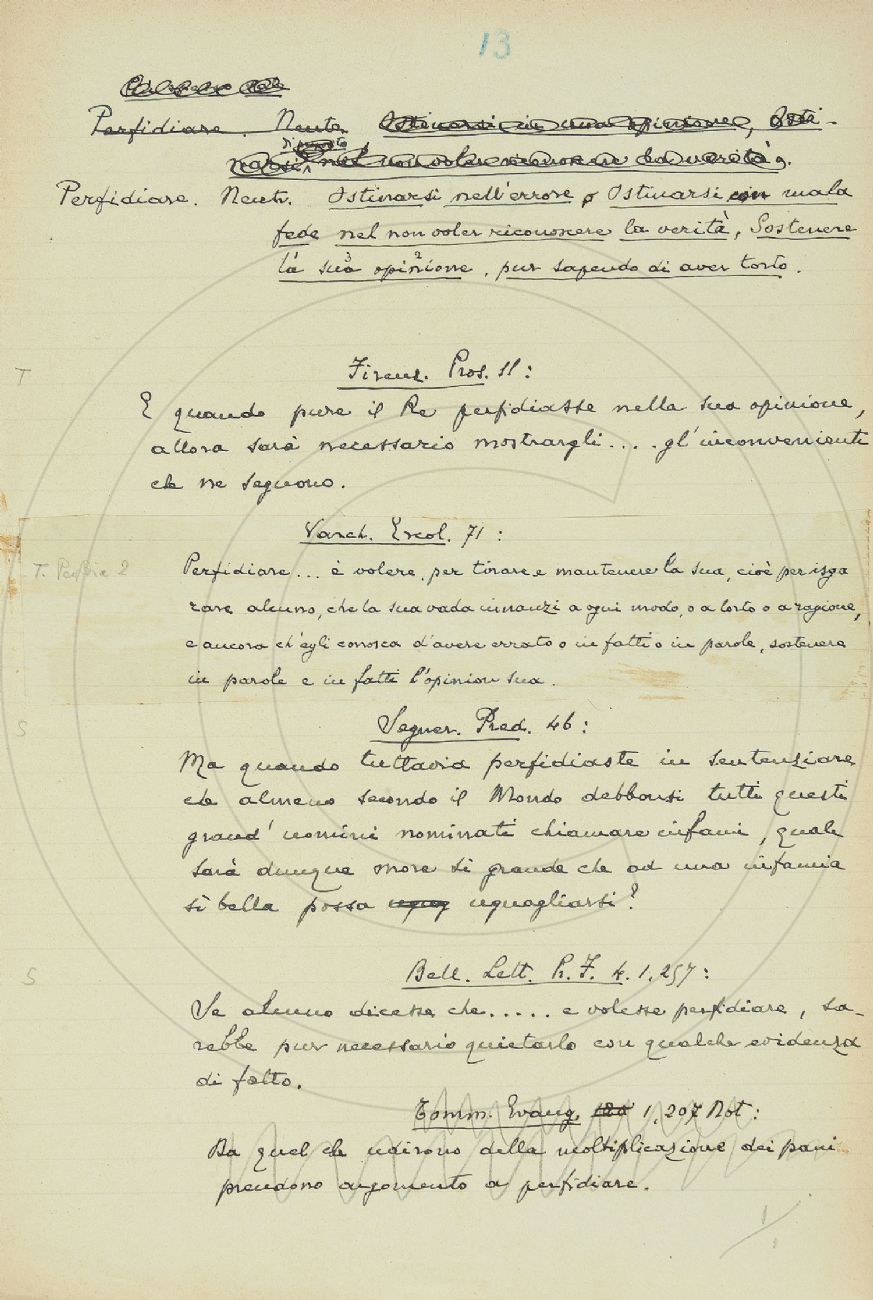 13
Perfidiare. Neutr. Ostinarsi in una opinione, Osti-
narsi nel non voler riconoscere la verità.
Perfidiare. Neutr. Ostinarsi nell'errore o Ostinarsi con mala
fede nel non voler riconoscere la verità, Sostenere
la sua opinione, pur sapendo di aver torto.
T
Firenz. Pros. 11:
E quando pure il Re perfidiasse nella sua opinione,
allora sarà necessario mostrargli.... gl'inconvenienti
che ne seguono.
Varch. Ercol. 71:
T. 2
Perfidiare... è volere, per tirare e mantenere la sua, cioè per isga
rare alcuno, che la sua vada innanzi a ogni modo, o a torto o a ragione,
e ancora ch'egli conosca d'avere errato o in fatti o in parole, sostenere
in parole e in fatti l'opinion sua.
S
Segner. Pred. 46:
Ma quando tuttavia perfidiaste in sentenziare
che almeno secondo il Mondo debbonsi tutti questi
grand'uomini nominati chiamare infami, quale
sarà dunque more sì grande che ad una infamia
sì bella possa uguagliarsi?
S
Bell. Lett. P. F. 4. 1, 257:
Se alcuno dicesse che..... e volesse perfidiare, sa-
rebbe pur necessario quietarlo con qualche evidenza
di fatto.
Tomm. Evang. 1, 207 Not:
Da quel che udirono della moltiplicazione dei pani
prendono argomento a perfidiare.
1/1